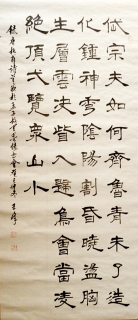 岱宗夫如何齊魯青未了造
化鍾神秀陰陽割昏曉盪胸
生層雲決眥入歸鳥會當凌
絕頂弌覽眾山小
錄唐杜甫詩